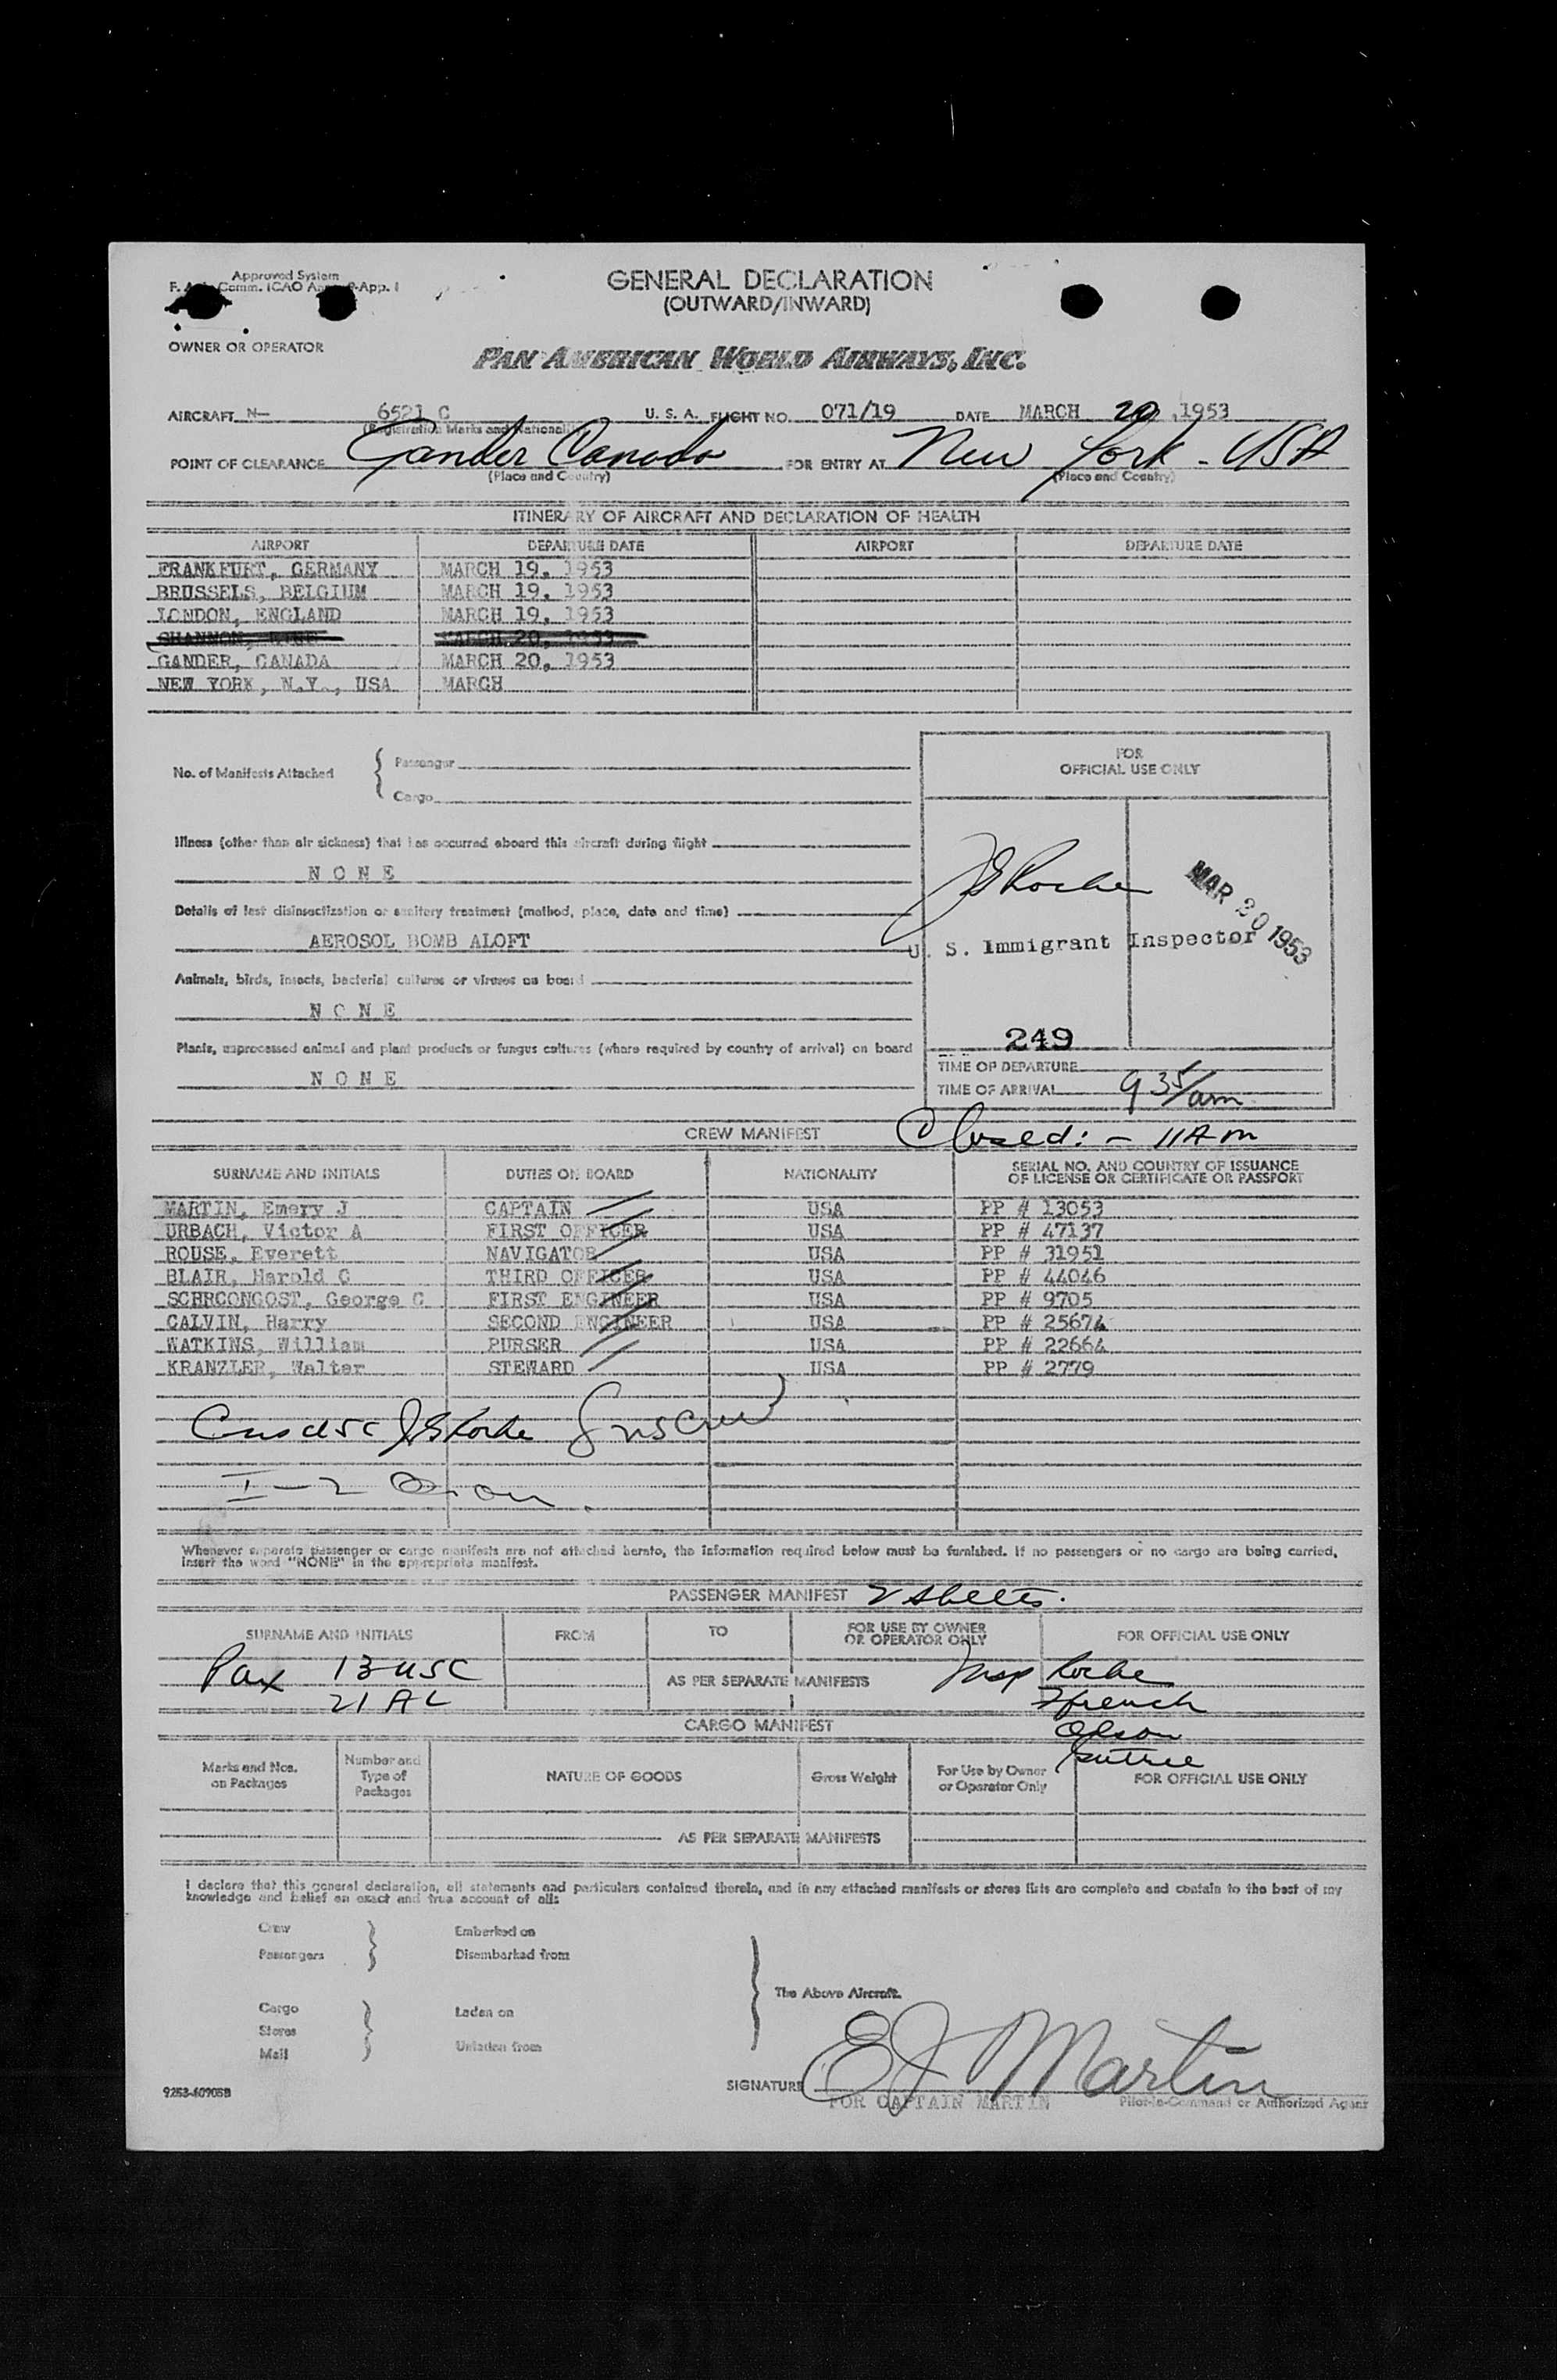 Approved System
Comm. ICAO App. 1
GENERAL DECLARATION
(OUTWARD/INWARD)
OWNER OR OPERATOR
PAN AMERICAN WORLD AIRWAYS, INC.
AIRCRAFT N— 6521 C U. S. A. FLIGHT NO. 071/19 DATE MARCH 20, 1953
(Registration Marks and Nationality)
POINT OF CLEARANCE Gander Canada FOR ENTRY AT New York - USA
(Place and Country) (Place and Country)
ITINERARY OF AIRCRAFT AND DECLARATION OF HEALTH
AIRPORT DEPARTURE DATE AIRPORT DEPARTURE DATE
FRANKFURT, GERMANY MARCH 19, 1953
BRUSSELS, BELGIUM MARCH 19, 1953
LONDON, ENGLAND MARCH 19, 1953
SHANNON, MARCH 20, 1953
GANDER, CANADA MARCH 20, 1953
NEW YORK, N.Y., USA MARCH
FOR
OFFICIAL USE ONLY
No. of Manifests Attached { Passenger
Cargo
Illness (other than air sickness) that has occurred aboard this aircraft during flight
N O N E
JERoche
MAR 20 1953
Details of last disinsectization or sanitary treatment (method, place, date and time)
AEROSOL BOMB ALOFT
U. S. Immigrant Inspector
Animals, birds, insects, bacterial cultures or viruses on board
N O N E
249
Plants, unprocessed animal and plant products or fungus cultures (where required by country of arrival) on board
N O N E
TIME OF DEPARTURE
TIME OF ARRIVAL 9 35/am
CREW MANIFEST Closed: - 11 Am
SURNAME AND INITIALS DUTIES ON BOARD NATIONALITY SERIAL NO. AND COUNTRY OF ISSUANCE
OF LICENSE OR CERTIFICATE OR PASSPORT
MARTIN, Emery J CAPTAIN USA PP # 13053
URBACH, Victor A FIRST OFFICER USA PP # 47137
ROUSE, Everett NAVIGATOR USA PP # 31951
BLAIR, Harold C THIRD OFFICER USA PP # 44046
SCHRCONGOST, George C FIRST ENGINEER USA PP # 9705
CALVIN, Harry SECOND ENGINEER USA PP # 25674
WATKINS, William PURSER USA PP # 22664
KRANZLER, Walter STEWARD USA PP # 2779
JERoche
I-2
Whenever separate passenger or cargo manifests are not attached hereto, the information required below must be furnished. If no passengers or no cargo are being carried,
insert the word "NONE" in the appropriate manifest.
PASSENGER MANIFEST 2 sheets.
SURNAME AND INITIALS FROM TO FOR USE BY OWNER
OR OPERATOR ONLY FOR OFFICIAL USE ONLY
Pax 13 USC AS PER SEPARATE MANIFESTS Insp Roche
21 AL French
CARGO MANIFEST Olson
Marks and Nos.
on Packages Number and
Type of
Packages NATURE OF GOODS Gross Weight For Use by Owner
or Operator Only FOR OFFICIAL USE ONLY
AS PER SEPARATE MANIFESTS
I declare that this general declaration, all statements and particulars contained therein, and in any attached manifests or stores lists are complete and contain to the best of my
knowledge and belief an exact and true account of all:
Crew Embarked on
Passengers Disembarked from
The Above Aircraft.
Cargo Laden on
Stores
Mail Unladen from
SIGNATURE EJ Martin
FOR CAPTAIN MARTIN Pilot-in-Command or Authorized Agent
9253-60905B